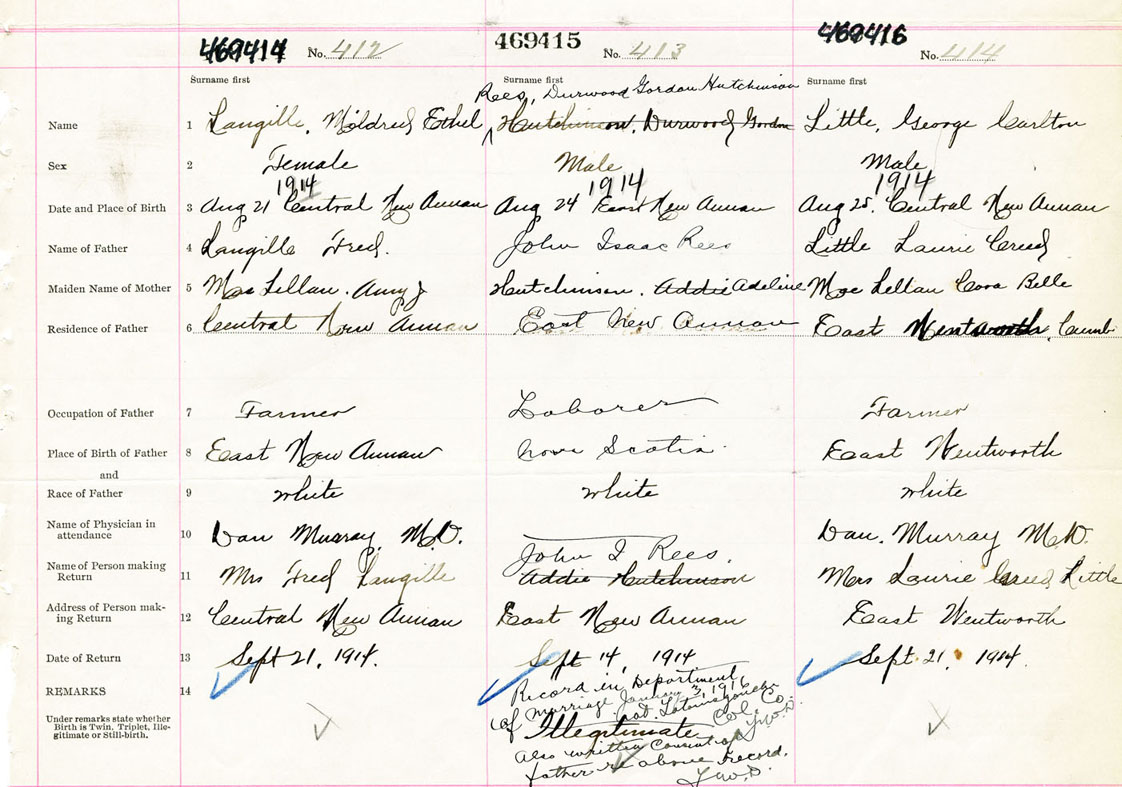 469414 No. 412 469415 No. 413 469416 No. 414
Surname first Surname first Surname first
Rees, Durwood Gordon Hutchinson
Name 1 Langille, Mildred Ethel Hutchinson, Durwood Gordon Little, George Carlton
Sex 2 Female Male Male
1914 1914 1914
Date and Place of Birth 3 Aug 21 Central New Annan Aug 24 East New Annan Aug 28. Central New Annan
Name of Father 4 Langille Fred. John Isaac Rees Little Laurie Creed
Maiden Name of Mother 5 MacLellan. Amy J Hutchinson. Addie Adeline MacLellan Cora Belle
Residence of Father 6 Central New Annan East New Annan East Wentworth, Cumb
Occupation of Father 7 Farmer Laborer Farmer
Place of Birth of Father 8 East New Annan Nova Scotia East Wentworth
and
Race of Father 9 white white white
Name of Physician in
attendance 10 Dan Murray M.D. Dan. Murray M.D.
Name of Person making John I Rees.
Return 11 Mrs Fred Langille Addie Hutchinson Mrs Laurie Creed Little
Address of Person mak-
ing Return 12 Central New Annan East New Annan East Wentworth
Date of Return 13 Sept 21, 1914. Sept 14, 1914 Sept. 21, 1914.
REMARKS 14 Record in Department
of marriage January 3, 1916
at Col. Co.
Under remarks state whether
Birth is Twin, Triplet, Ille-
gitimate or Still-birth.
Illegitimate
Also written Consent of
father re above record.